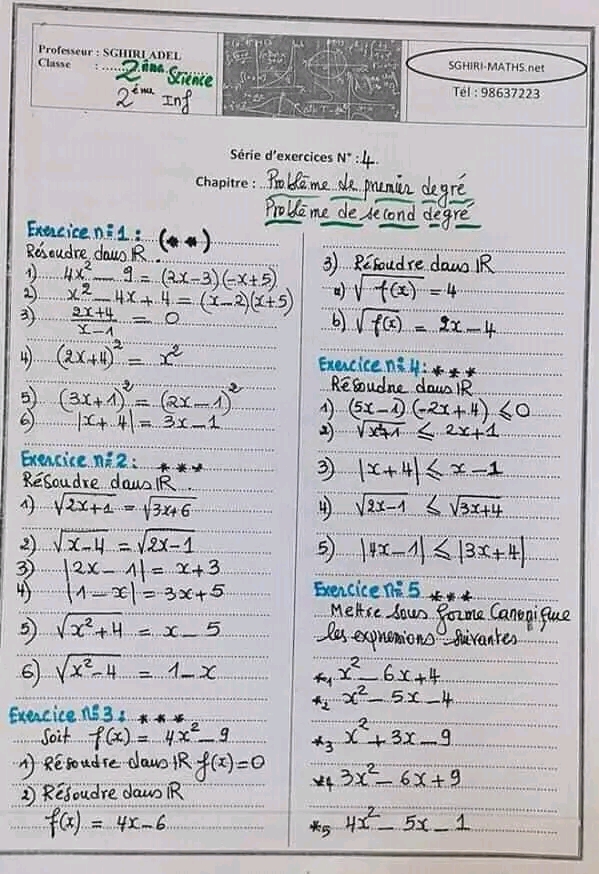 Professeur : SGHIRI ADEL
Classe : 2ème Science
2ème Inf
SGHIRI-MATHS.net
Tél : 98637223
Série d'exercices N° : 4
Chapitre : Problème de premier degré
Problème de second degré
Exercice n°1 : (**)
Résoudre dans IR
1) 4x² - 9 = (2x-3)(-x+5)
2) x² - 4x + 4 = (x-2)(x+5)
3) (2x+4)/(x-1) = 0
4) (2x+4)² = x²
5) (3x+1)² = (2x-1)²
6) |x+4| = 3x-1
Exercice n°2 : ***
Résoudre dans IR
1) √(2x+1) = √(3x+6)
2) √(x-4) = √(2x-1)
3) |2x-1| = x+3
4) |1-x| = 3x+5
5) √(x²+4) = x-5
6) √(x²-4) = 1-x
Exercice n°3 : ***
Soit f(x) = 4x²-9
1) Résoudre dans IR f(x)=0
2) Résoudre dans IR
f(x) = 4x-6
3) Résoudre dans IR
a) √f(x) = 4
b) √f(x) = 2x-4
Exercice n°4 : ***
Résoudre dans IR
1) (5x-1)(-2x+4) ⩽ 0
2) ⩽ 2x+1
3) |x+4| ⩽ x-1
4) √(2x-1) ⩽ √(3x+4)
5) |4x-1| ⩽ |3x+4|
Exercice n°5 ***
Mettre sous forme Canonique
les expressions suivantes
*1 x² - 6x + 4
*2 x² - 5x - 4
*3 x² + 3x - 9
*4 3x² - 6x + 9
*5 4x² - 5x - 1